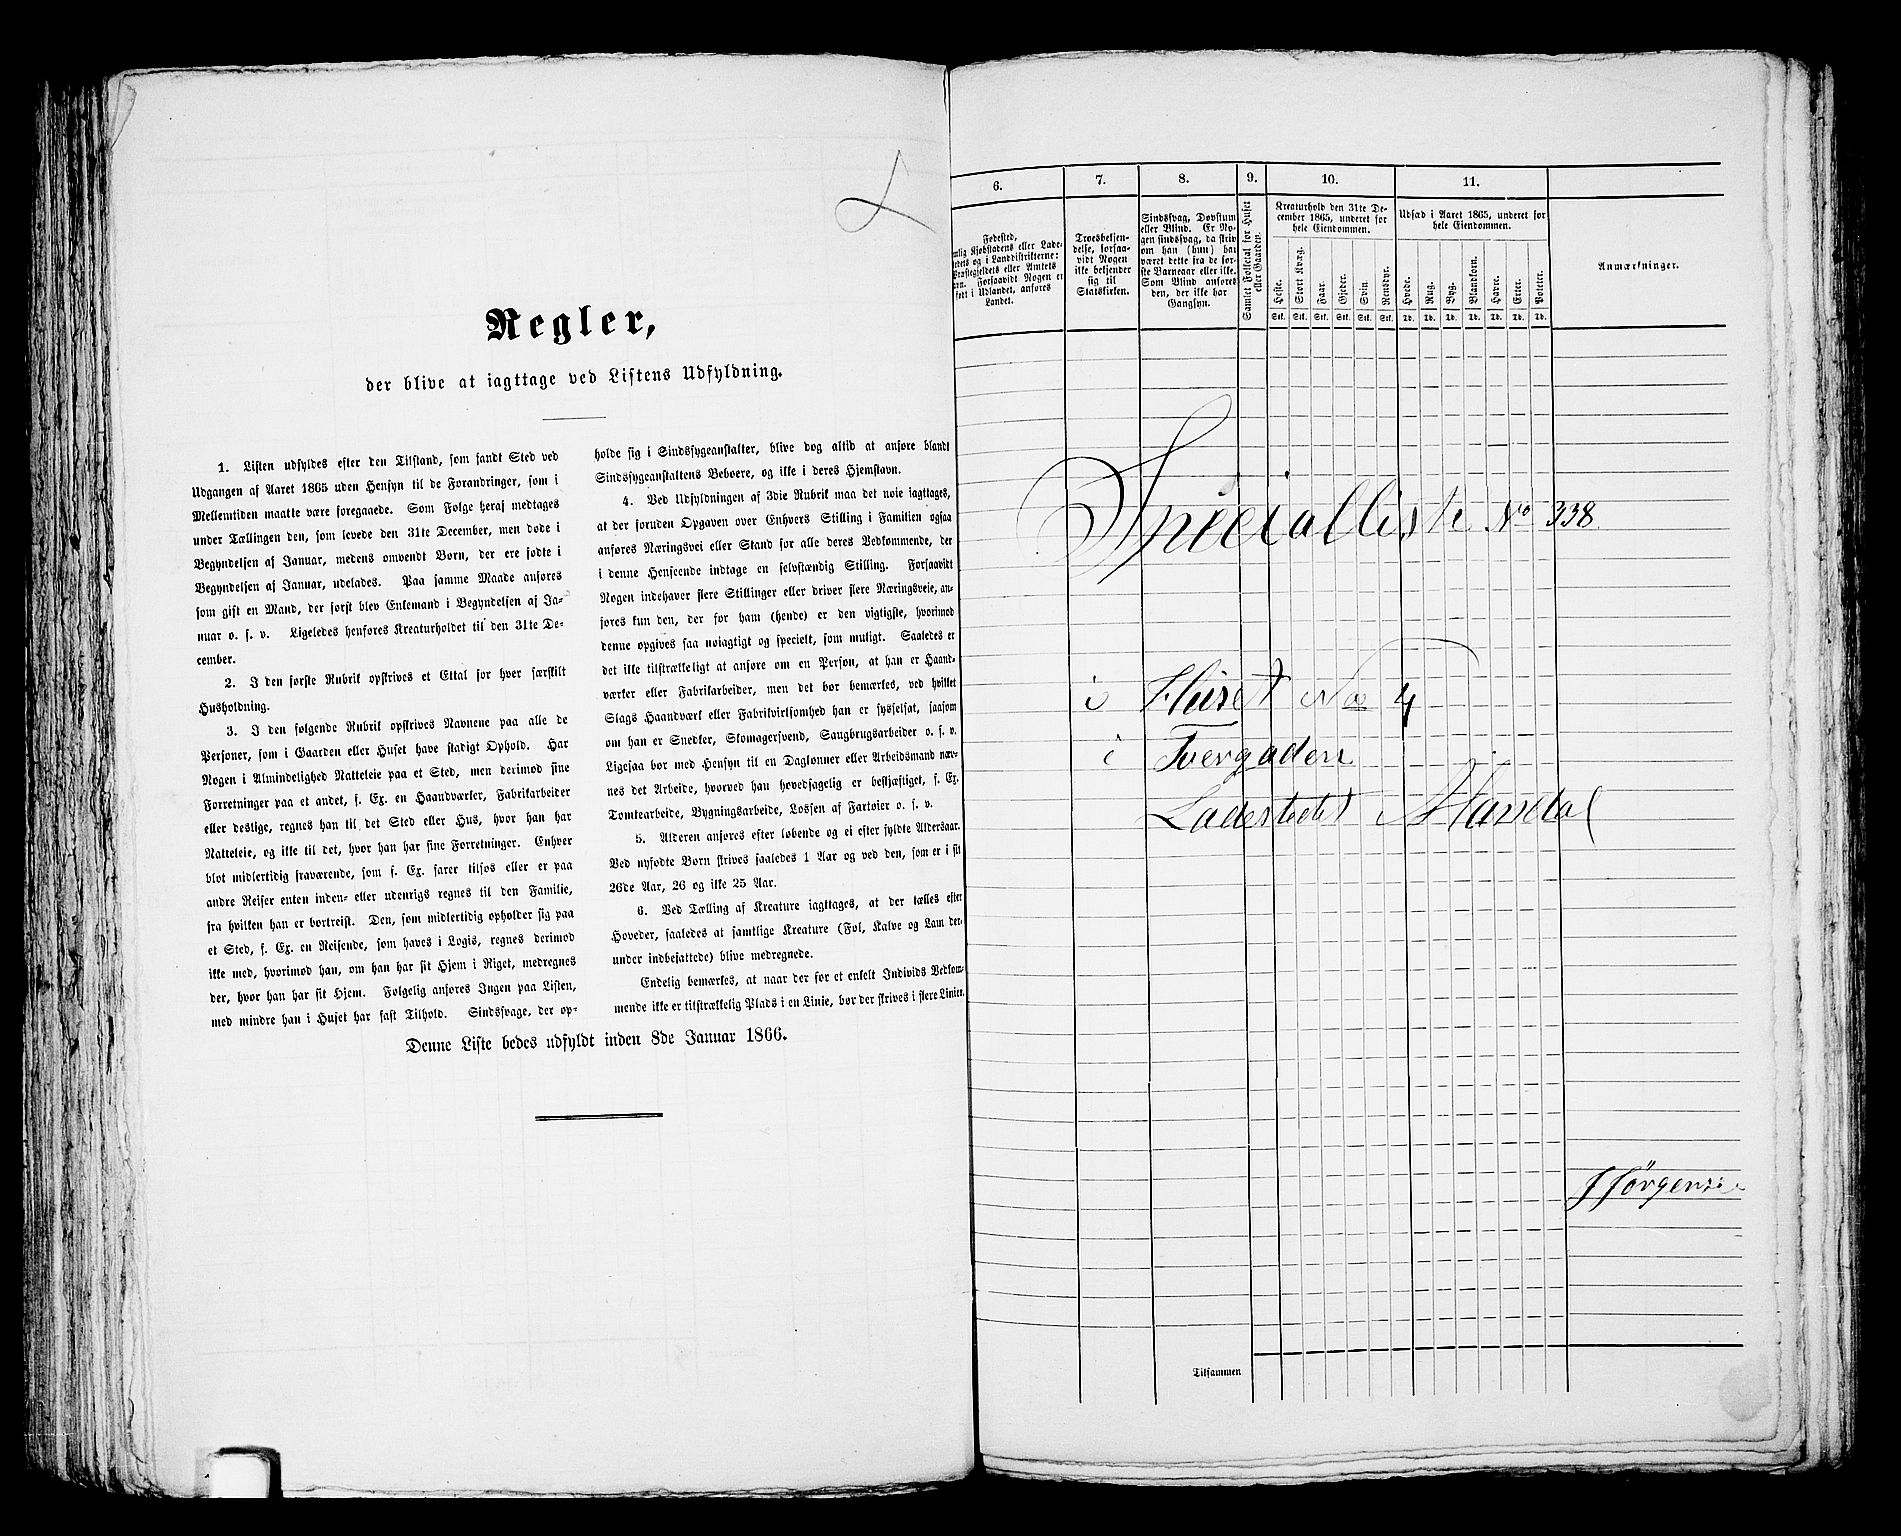 Regler,
der blive at iagttage ved Listens Udfyldning.
1. Listen udfyldes efter den Tilstand, som fandt Sted ved
Udgangen af Aaret 1865 uden Hensyn til de Forandringer, som i
Mellemtiden maatte være foregaaede. Som Følge heraf medtages
under Tællingen den, som levede den 31te December, men døde i
Begyndelsen af Januar, medens omvendt Børn, der ere fødte i
Begyndelsen af Januar, udelades. Paa samme Maade anføres
som gift en Mand, der først blev Enkemand i Begyndelsen af Ja-
nuar o. s. v. Ligeledes henføres Kreaturholdet til den 31te De-
cember.
2. I den første Rubrik opskrives et Ettal for hver særskilt
Husholdning.
3. I den følgende Rubrik opskrives Navnene paa alle de
Personer, som i Gaarden eller Huset have stadigt Ophold. Har
Nogen i Almindelighed Natteleie paa et Sted, men derimod sine
Forretninger paa et andet, f. Ex. en Haandværker, Fabrikarbeider
eller deslige, regnes han til det Sted eller Hus, hvor han har
Natteleie, og ikke til det, hvor han har sine Forretninger. Enhver
blot midlertidig fraværende, som f. Ex. farer tilsøs eller er paa
andre Reiser enten inden- eller udenrigs regnes til den Familie,
fra hvilken han er bortreist. Den, som midlertidig opholder sig paa
et Sted, f. Ex. en Reisende, som haves i Logis, regnes derimod
ikke med, hvorimod han, om han har sit Hjem i Riget, medregnes
der, hvor han har sit Hjem. Følgelig anføres Ingen paa Listen,
med mindre han i Huset har fast Tilhold. Sindssvage, der op-
holde sig i Sindssygeanstalter, blive dog altid at anføre blandt
Sindssygeanstaltens Beboere, og ikke i deres Hjemstavn.
4. Ved Udfyldningen af 3die Rubrik maa det nøie iagttages,
at der foruden Opgaven over Enhvers Stilling i Familien ogsaa
anføres Næringsvei eller Stand for alle deres Vedkommende, der
i denne Henseende indtage en selvstændig Stilling. Forsaavidt
Nogen indehaver flere Stillinger eller driver flere Næringsveie, an-
føres kun den, der for ham (hende) er den vigtigste, hvorimod
denne opgives saa nøiagtigt og specielt, som muligt. Saaledes er
det ikke tilstrækkeligt at anføre om en Person, at han er Haand-
værker eller Fabrikarbeider, men det bør bemærkes, ved hvilket
Slags Haandværk eller Fabrikvirksomhed han er sysselsat, saasom
om han er Snedker, Skomagersvend, Saugbrugsarbeider o. s. v.
Ligesaa bør med Hensyn til en Daglønner eller Arbeidsmand næv-
nes det Arbeide, hvorved han hovedsagelig er beskjæftiget, f. Ex.
Tomtearbeide, Bygningsarbeide, Lossen af Fartøier o. s. v.
5. Alderen anføres efter løbende og ei efter fyldte Aldersaar.
Ved nyfødte Børn skrives saaledes 1 Aar og ved den, som er i sit
26de Aar, 26 og ikke 25 Aar.
6. Ved Tælling af Kreature iagttages, at der tælles efter
Hoveder, saaledes at samtlige Kreature (Føl, Kalve og Lam der-
under indbefattede) blive medregnede.
Endelig bemærkes, at naar der for et enkelt Individs Vedkom-
mende ikke er tilstrækkelig Plads i en Linie, bør der skrives i flere Linier.
Denne Liste bedes udfyldt inden 8de Januar 1866.
6. 7. 8. 9. 10. 11.
Fødested,
Kjøbstadens eller Lade-
og i Landdistrikterne:
eller Amtets
Forsaavidt Nogen er
født i Udlandet, anføres
Landet.
Troesbekjen-
delse, forsaa-
vidt Nogen
ikke bekjender
sig til
Statskirken.
Sindssvag, Døvstum
eller Blind. Er No-
gen sindssvag, da skriv
om han (hun) har
været dette fra de før-
ste Barneaar eller ikke.
Som Blind anføres
den, der ikke har
Gangsyn.
Samlet Folketal for Huset
eller Gaarden.
Kreaturhold den 31te De-
cember 1865, underet for
hele Eiendommen.
Heste. Stort Kvæg. Faar. Gjeder. Svin. Rensdyr.
Stk. Stk. Stk. Stk. Stk. Stk.
Udsæd i Aaret 1865, underet for
hele Eiendommen.
Hvede. Rug. Byg. Blandkorn. Havre. Erter. Poteter.
Td. Td. Td. Td. Td. Td. Td.
Anmærkninger.
Specialliste No 338
i Huset No 4
i Tvergaden
Ladestedet Mandal
J Jørgensen
Tilsammen